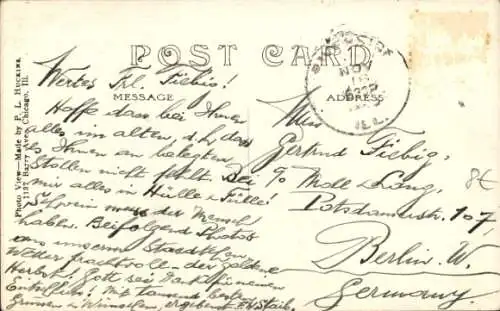 POST CARD
MESSAGE
ADDRESS
Photo View—Made by P. L. Huckins,
1137 Barry Ave., Chicago, Ill.
NOV
ILL.
Wertes Frl. Fiebig!
Hoffe dass bei Ihnen
alles im alten, d.h., dass
es Ihnen an belegten
Stollen nicht fehlt. Bei
mir alles in Hülle & Fülle!
der Mensch
haben. Beifolgend Photos
aus unserem Staedtchen
Wetter prachtvoll – der goldene
Herbst! Gott sei Dank für meinen
Entschluss! Mit tausend besten
Grüssen & Wünschen, ergebenst
Miss
Gertrud Fiebig,
c/o Molle & Lang,
Potsdamerstr. 107,
Berlin. W.
Germany.
8€